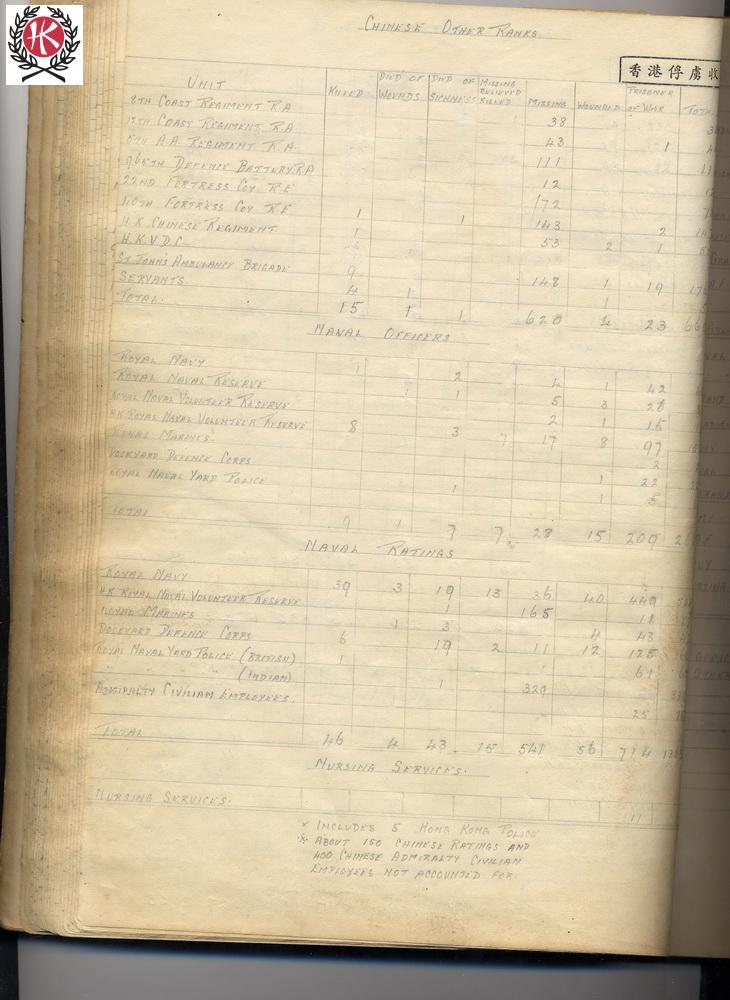 HK
CHINESE OTHER RANKS
香港俘虜收
UNIT KILLED DIED OF WOUNDS DIED OF SICKNESS MISSING BELIEVED KILLED MISSING WOUNDED PRISONER OF WAR TOTAL
8TH COAST REGIMENT R.A 38
12TH COAST REGIMENT R.A 48 1
5TH A.A. REGIMENT R.A. 111
965TH DEFENCE BATTERY R.A 12
22ND FORTRESS COY R.E 172
40TH FORTRESS COY R.E 1 1 143 2
H.K CHINESE REGIMENT 1 53 2 1
H.K.V.D.C
ST JOHN'S AMBULANCE BRIGADE 9 148 1 19
SERVANTS. 4 1 1
TOTAL. 15 1 1 620 4 23 66
NAVAL OFFICERS
ROYAL NAVY 1 2 4 1 42
ROYAL NAVAL RESERVE 1 1 5 3 28
ROYAL NAVAL VOLUNTEER RESERVE 2 1 15
HK ROYAL NAVAL VOLUNTEER RESERVE 8 3 7 17 8 97
ROYAL MARINES. 2
DOCKYARD DEFENCE CORPS 1 22
ROYAL NAVAL YARD POLICE 1 1 3
TOTAL 9 1 7 7 28 15 209
NAVAL RATINGS
ROYAL NAVY 39 3 19 13 36 40 449
HK ROYAL NAVAL VOLUNTEER RESERVE 1 165 18
ROYAL MARINES 1 3 4 43
DOCKYARD DEFENCE CORPS 6 19 2 11 12 125
ROYAL NAVAL YARD POLICE (BRITISH) 1 61
" " " " (INDIAN) 1 329
ADMIRALTY CIVILIAN EMPLOYEES. 25
TOTAL 46 4 43 15 541 56 714
NURSING SERVICES.
NURSING SERVICES. 11
* INCLUDES 5 HONG KONG POLICE
※ ABOUT 150 CHINESE RATINGS AND
400 CHINESE ADMIRALTY CIVILIAN
EMPLOYEES NOT ACCOUNTED FOR